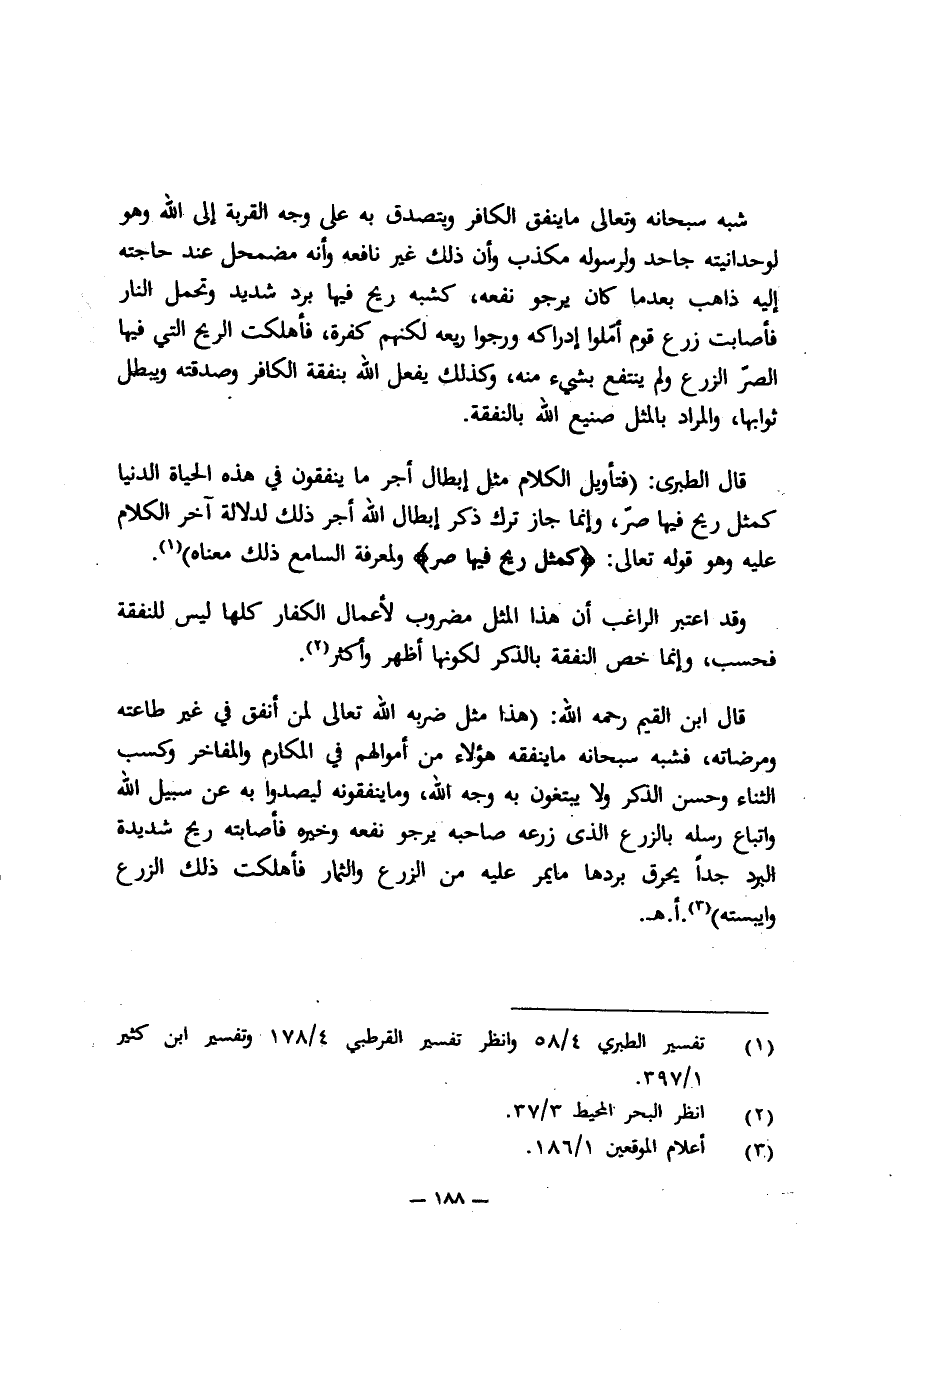 شبه سبحانه وتعالى ماينفق الكافر ويتصدق به على وجه القربة إلى الله وهو
لوحدانيته جاحد ولرسوله مكذب وأن ذلك غير نافعه وأنه مضمحل عند حاجته
إليه ذاهب بعدما كان يرجو نفعه، كشبه ريح فيها برد شديد وتحمل النار
فأصابت زرع قوم أمّلوا إدراكه ورجوا ريعه لكنهم كفرة، فأهلكت الريح التي فيها
الصرّ الزرع ولم ينتفع بشيء منه، وكذلك يفعل الله بنفقة الكافر وصدقته ويبطل
ثوابها، والمراد بالمثل صنيع الله بالنفقة.
قال الطبرى: (فتأويل الكلام مثل إبطال أجر ما ينفقون في هذه الحياة الدنيا
كمثل ريح فيها صرّ، وإنما جاز ترك ذكر إبطال الله أجر ذلك لدلالة آخر الكلام
عليه وهو قوله تعالى: ﴿كمثل ريح فيها صر﴾ ولمعرفة السامع ذلك معناه)(١).
وقد اعتبر الراغب أن هذا المثل مضروب لأعمال الكفار كلها ليس للنفقة
فحسب، وإنما خص النفقة بالذكر لكونها أظهر وأكثر(٢).
قال ابن القيم رحمه الله: (هذا مثل ضربه الله تعالى لمن أنفق في غير طاعته
ومرضاته، فشبه سبحانه ماينفقه هؤلاء من أموالهم في المكارم والمفاخر وكسب
الثناء وحسن الذكر ولا يبتغون به وجه الله، وماينفقونه ليصدوا به عن سبيل الله
واتباع رسله بالزرع الذى زرعه صاحبه يرجو نفعه وخيره فأصابته ريح شديدة
البرد جداً يحرق بردها مايمر عليه من الزرع والثمار فأهلكت ذلك الزرع
وايبسته)(٣).أ.هـ.
(١) تفسير الطبري ٥٨/٤ وانظر تفسير القرطبي ١٧٨/٤ وتفسير ابن كثير
٣٩٧/١.
(٢) انظر البحر المحيط ٣٧/٣.
(٣) أعلام الموقعين ١٨٦/١.
— ١٨٨ —